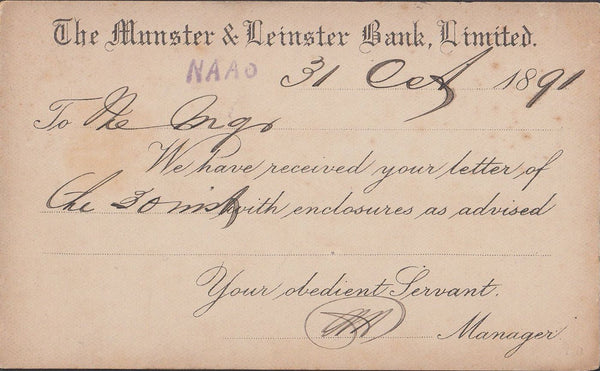 The Munster & Leinster Bank, Limited.
NAAO 31 Oct 1891
To The Mngr
We have received your letter of
the 30 inst with enclosures as advised
Your obedient Servant.
Manager